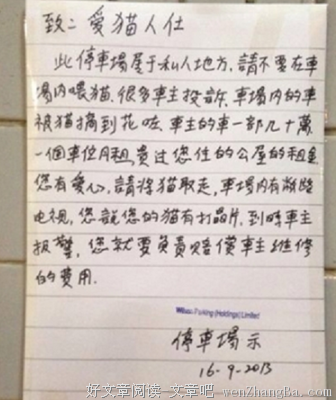 致：愛猫人仕
此停車場屬于私人地方，請不要在車
場内喂猫，很多車主投訴，車場内的車
被猫搞到花咗，車主的車一部几十萬，
一個車位月租，貴过您住的公屋的租金
您有爱心，請将猫取走，車場内有闭路
电视，您說您的猫有打晶片，到時車主
报警，您就要負責賠償車主維修
的費用．
Wilson Parking (Holdings) Limited
停車場示
16-9-2013
好文章阅读-文章吧-wenZhangBa.Com